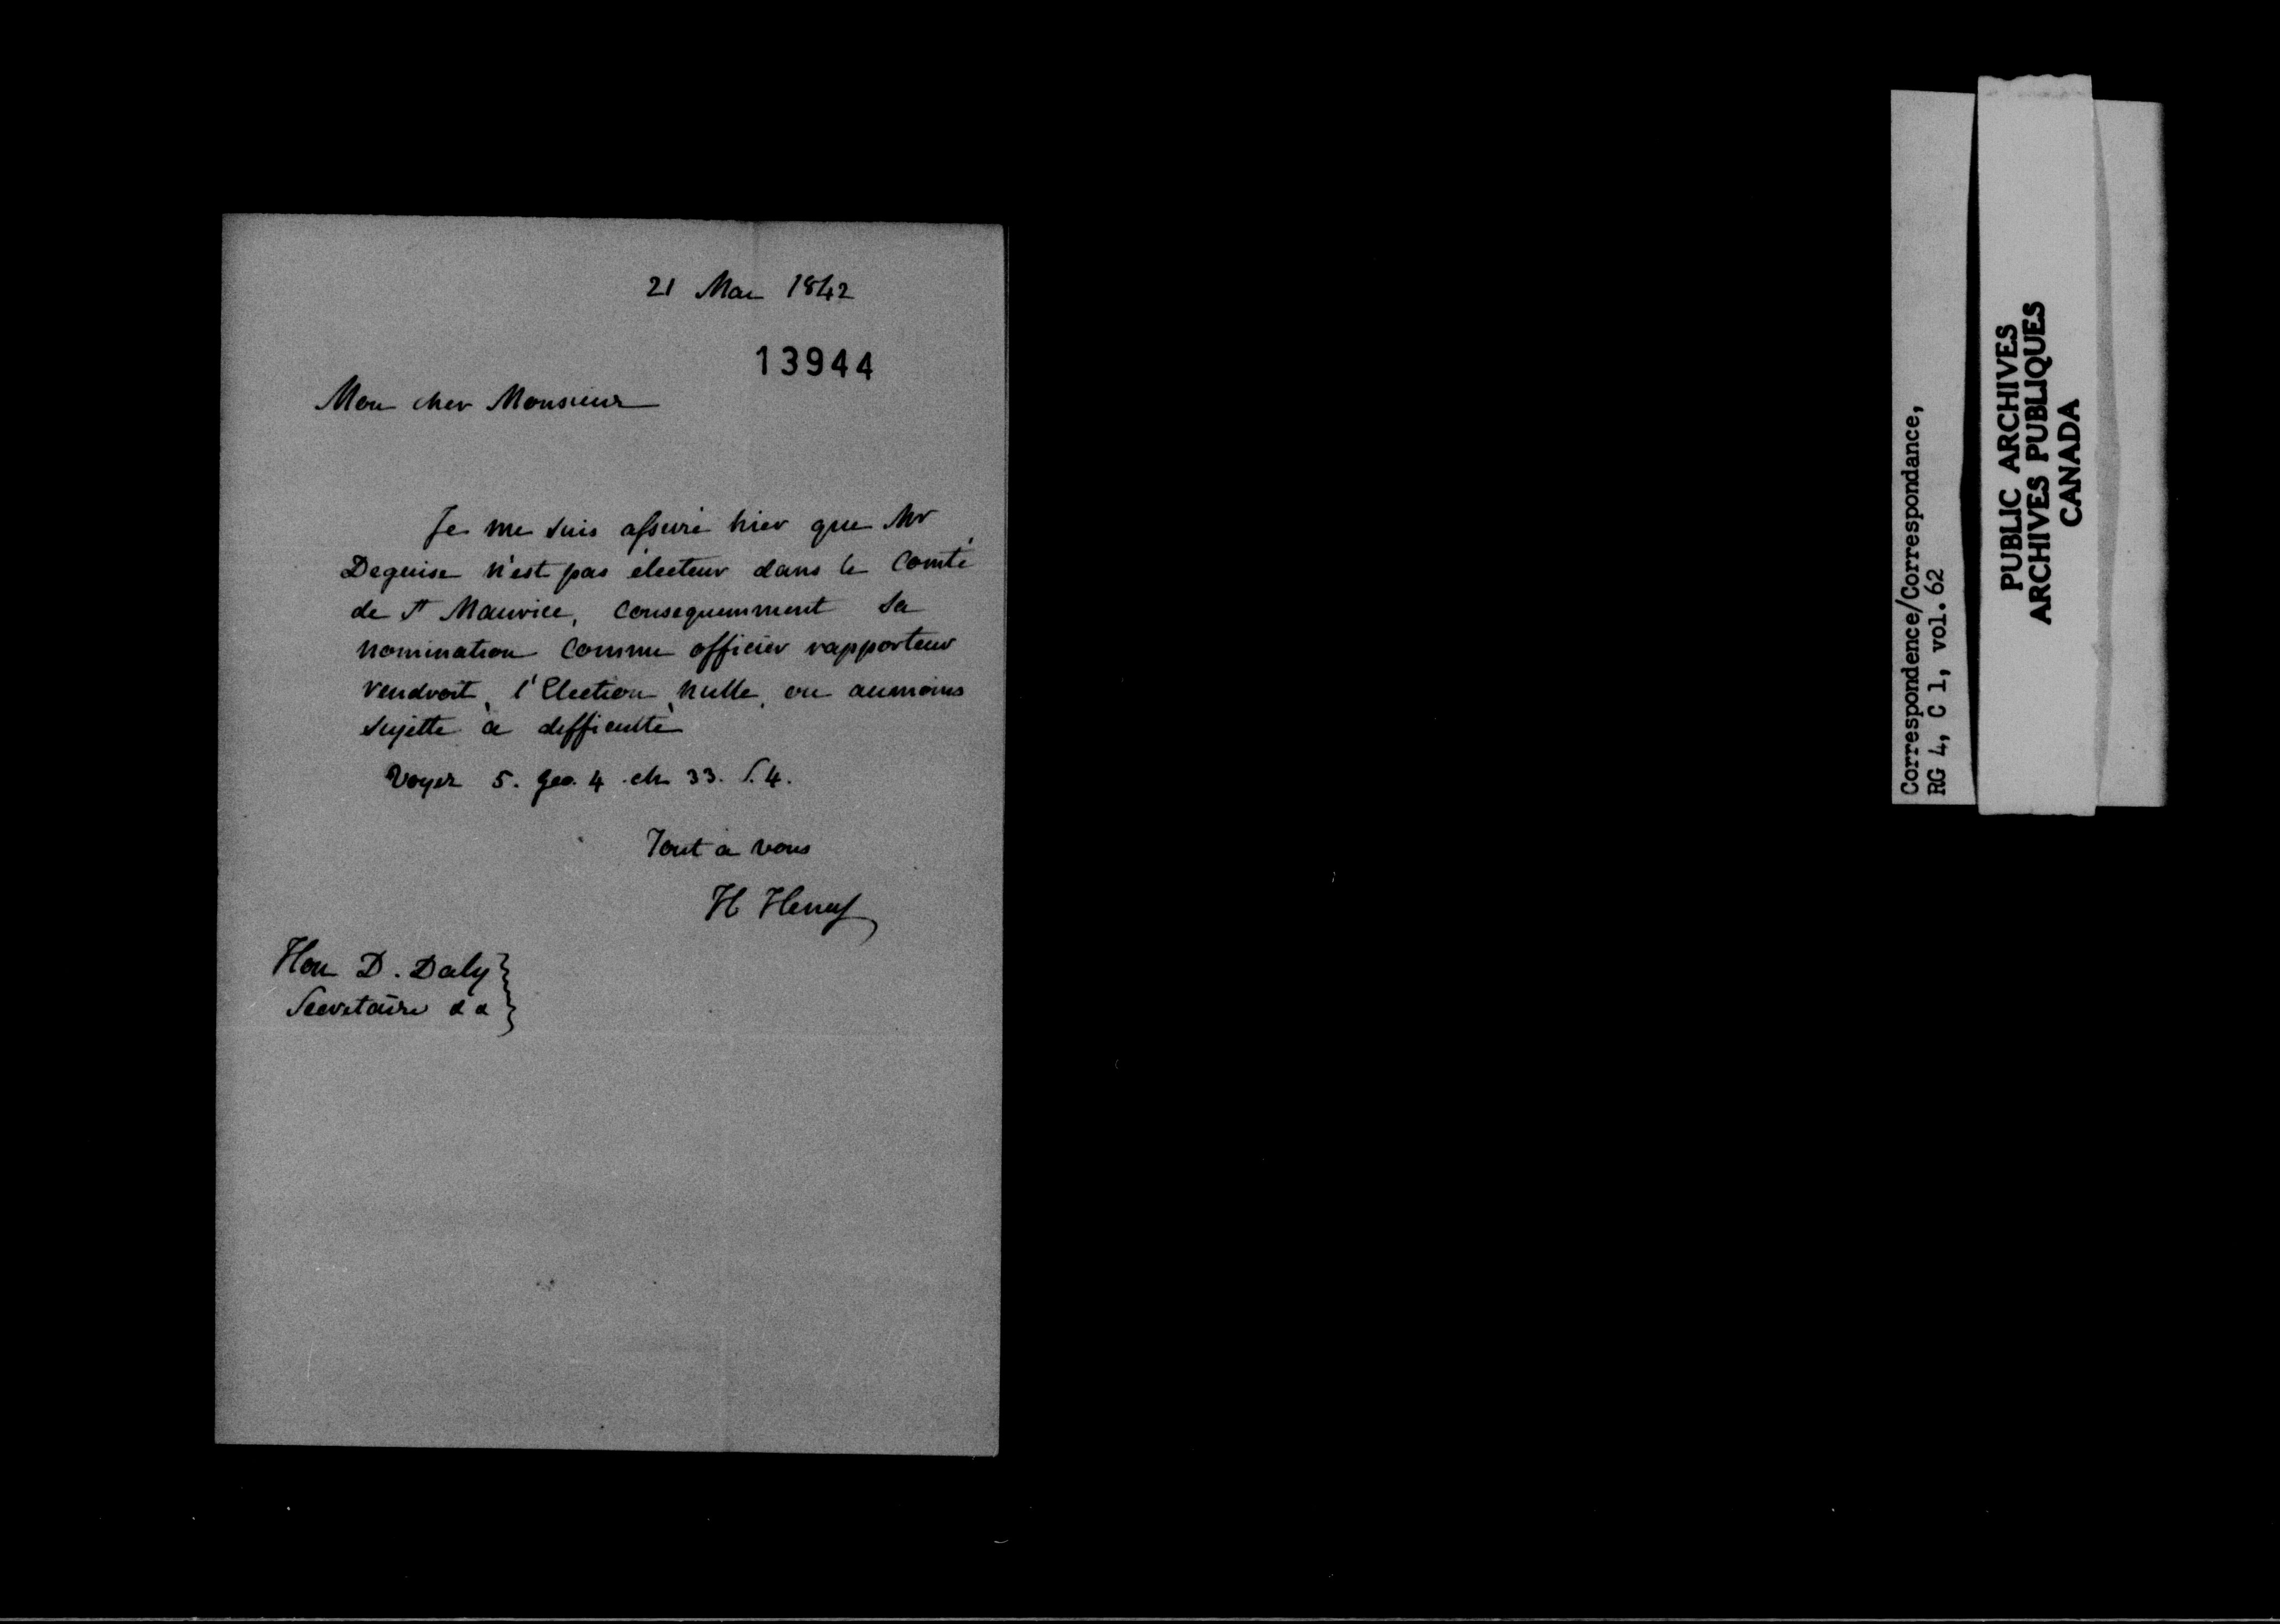 21 Mai 1842
13944
Mon cher Monsieur
Je me suis assuré hier que Mr
Deguise n'est pas électeur dans le Comté
de St Maurice, consequemment sa
nomination comme officier rapporteur
rendroit l'Election nulle, ou aumoins
sujette à difficulté
Voyez 5. Geo. 4 ch 33. S. 4.
Tout a vous
H Heney
Hon D. Daly
Secretaire &a
Correspondence/Correspondance,
RG 4, C 1, vol. 62
PUBLIC ARCHIVES
ARCHIVES PUBLIQUES
CANADA